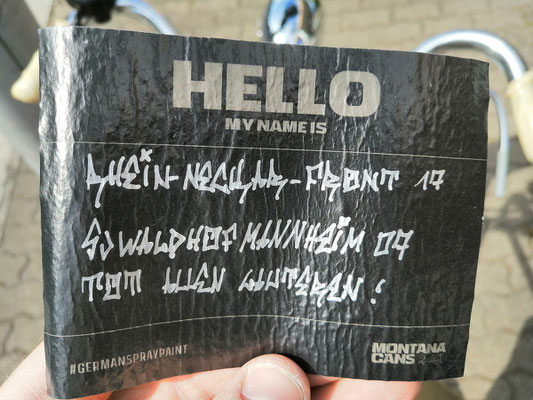 HELLO
MY NAME IS
RHEiN-NECKAR-FRONT 17
SV WALDHOF MANNHEiM 07
TOT ALLEN LAUTEREN!
#GERMANSPRAYPAINT
MONTANA
CANS